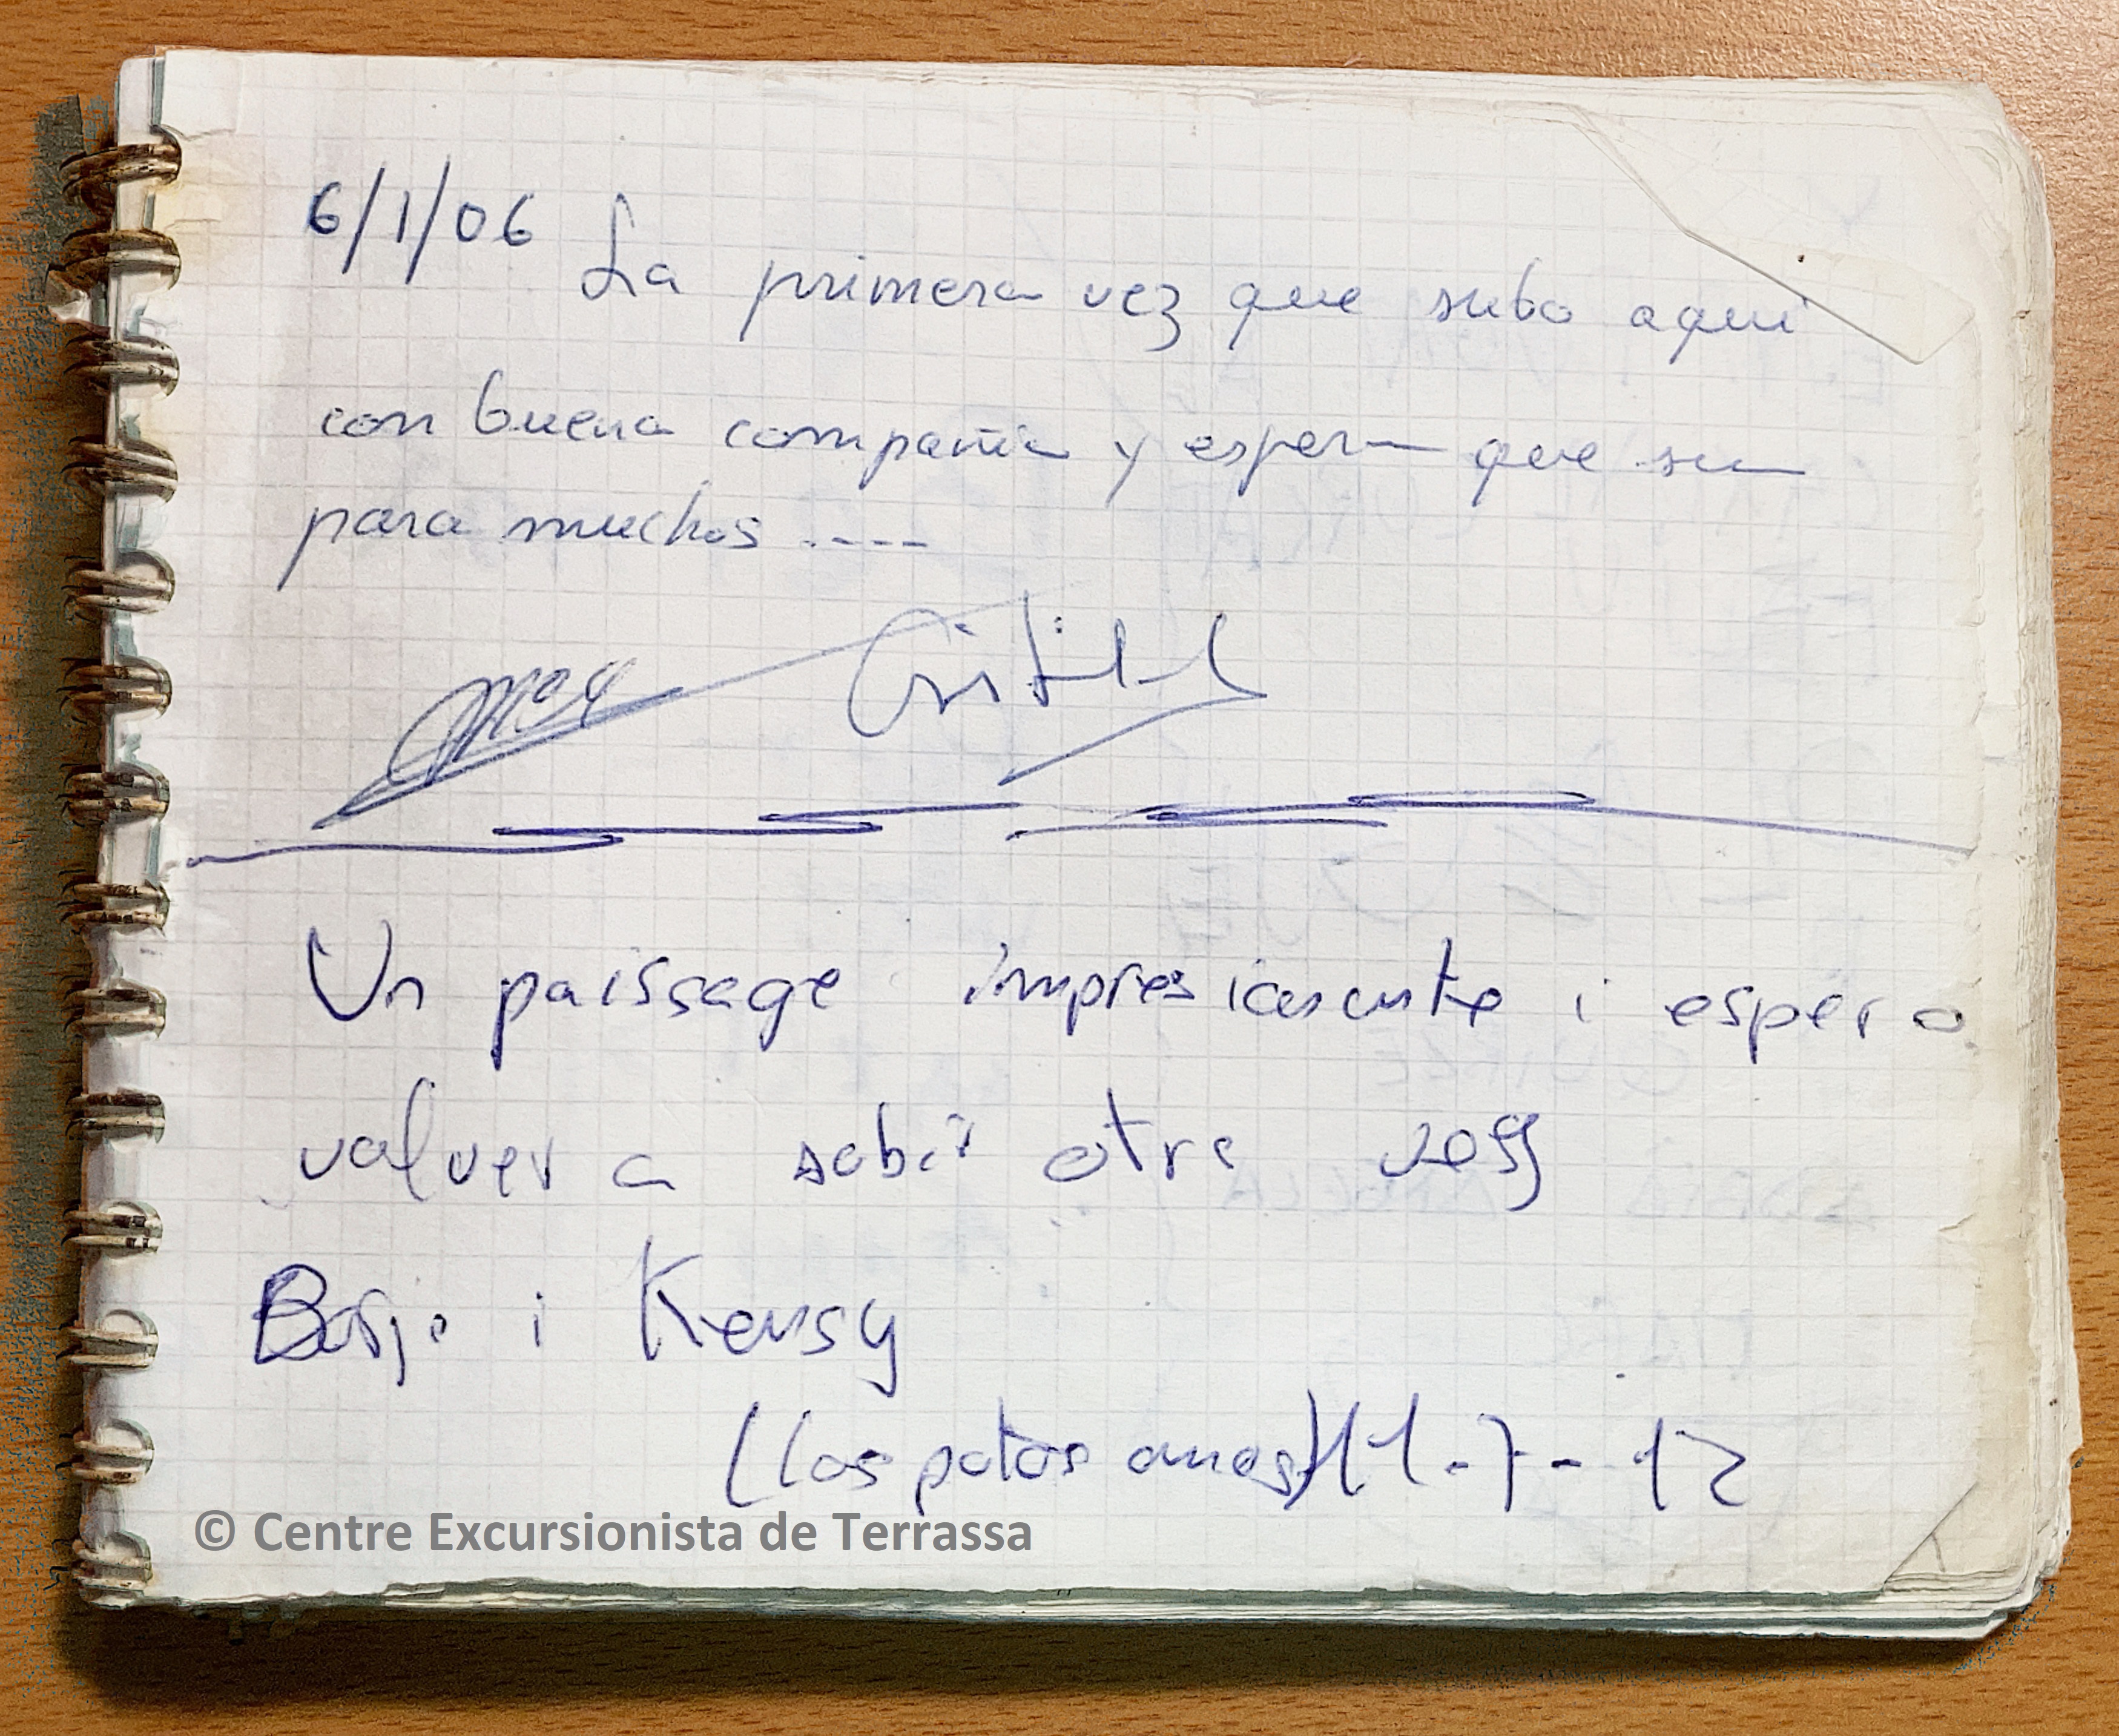 6/1/06 La primera vez que subo aqui
con buena compañia y espero que sea
para muchos ....
Un paissage impresionante i espero
volver a sobir otra vess
Borja i Kensy
(los potos anes) 11-7-12
© Centre Excursionista de Terrassa